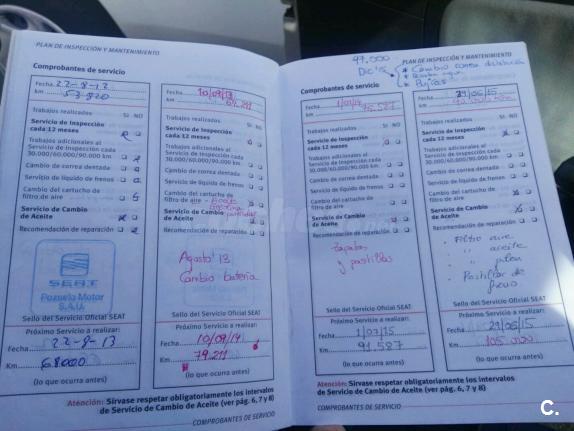 PLAN DE INSPECCIÓN Y MANTENIMIENTO
Comprobantes de servicio
Fecha 22-8-12
km 53.820
Trabajos realizados SI NO
Servicio de Inspección
cada 12 meses
Trabajos adicionales al
Servicio de Inspección cada
30.000/60.000/90.000 km
Cambio de correa dentada
Servicio de líquido de frenos
Cambio del cartucho de
filtro de aire
Servicio de Cambio
de Aceite
Recomendación de reparación
SEAT
Pozuelo Motor
S.A.U.
Sello del Servicio Oficial SEAT
Próximo Servicio a realizar:
Fecha 22-8-13
Km 68000
(lo que ocurra antes)
Fecha 10/09/13
km
Trabajos realizados SI NO
Servicio de Inspección
cada 12 meses
Trabajos adicionales al
Servicio de Inspección cada
30.000/60.000/90.000 km
Cambio de correa dentada
Servicio de líquido de frenos
Cambio del cartucho de
filtro de aire
Servicio de Cambio
de Aceite
Recomendación de reparación
Agosto' 13
Cambio batería
Sello del Servicio Oficial SEAT
Próximo Servicio a realizar:
Fecha 10/09/14
Km 79.211
(lo que ocurra antes)
Atención: Sírvase respetar obligatoriamente los intervalos
de Servicio de Cambio de Aceite (ver pág. 6, 7 y 8)
COMPROBANTES DE SERVICIO
97.000
Dic'15
Cambio correa distribución
Bujías
PLAN DE INSPECCIÓN Y MANTENIMIENTO
Comprobantes de servicio
Fecha
km 76.527
Trabajos realizados SI NO
Servicio de Inspección
cada 12 meses
Trabajos adicionales al
Servicio de Inspección cada
30.000/60.000/90.000 km
Cambio de correa dentada
Servicio de líquido de frenos
Cambio del cartucho de
filtro de aire
Servicio de Cambio
de Aceite
Recomendación de reparación
zapatas
y pastillas
Sello del Servicio Oficial SEAT
Próximo Servicio a realizar:
Fecha 1/07/15
Km 91.527
(lo que ocurra antes)
Fecha 29/06/15
km
Trabajos realizados SI NO
Servicio de Inspección
cada 12 meses
Trabajos adicionales al
Servicio de Inspección cada
30.000/60.000/90.000 km
Cambio de correa dentada
Servicio de líquido de frenos
Cambio del cartucho de
filtro de aire
Servicio de Cambio
de Aceite
Recomendación de reparación
Filtro aire
" aceite
" polen
Pastillas de
freno
Sello del Servicio Oficial SEAT
Próximo Servicio a realizar:
Fecha
Km 105.000
(lo que ocurra antes)
Atención: Sírvase respetar obligatoriamente los intervalos
de Servicio de Cambio de Aceite (ver pág. 6, 7 y 8)
COMPROBANTES DE SERVICIO
C.